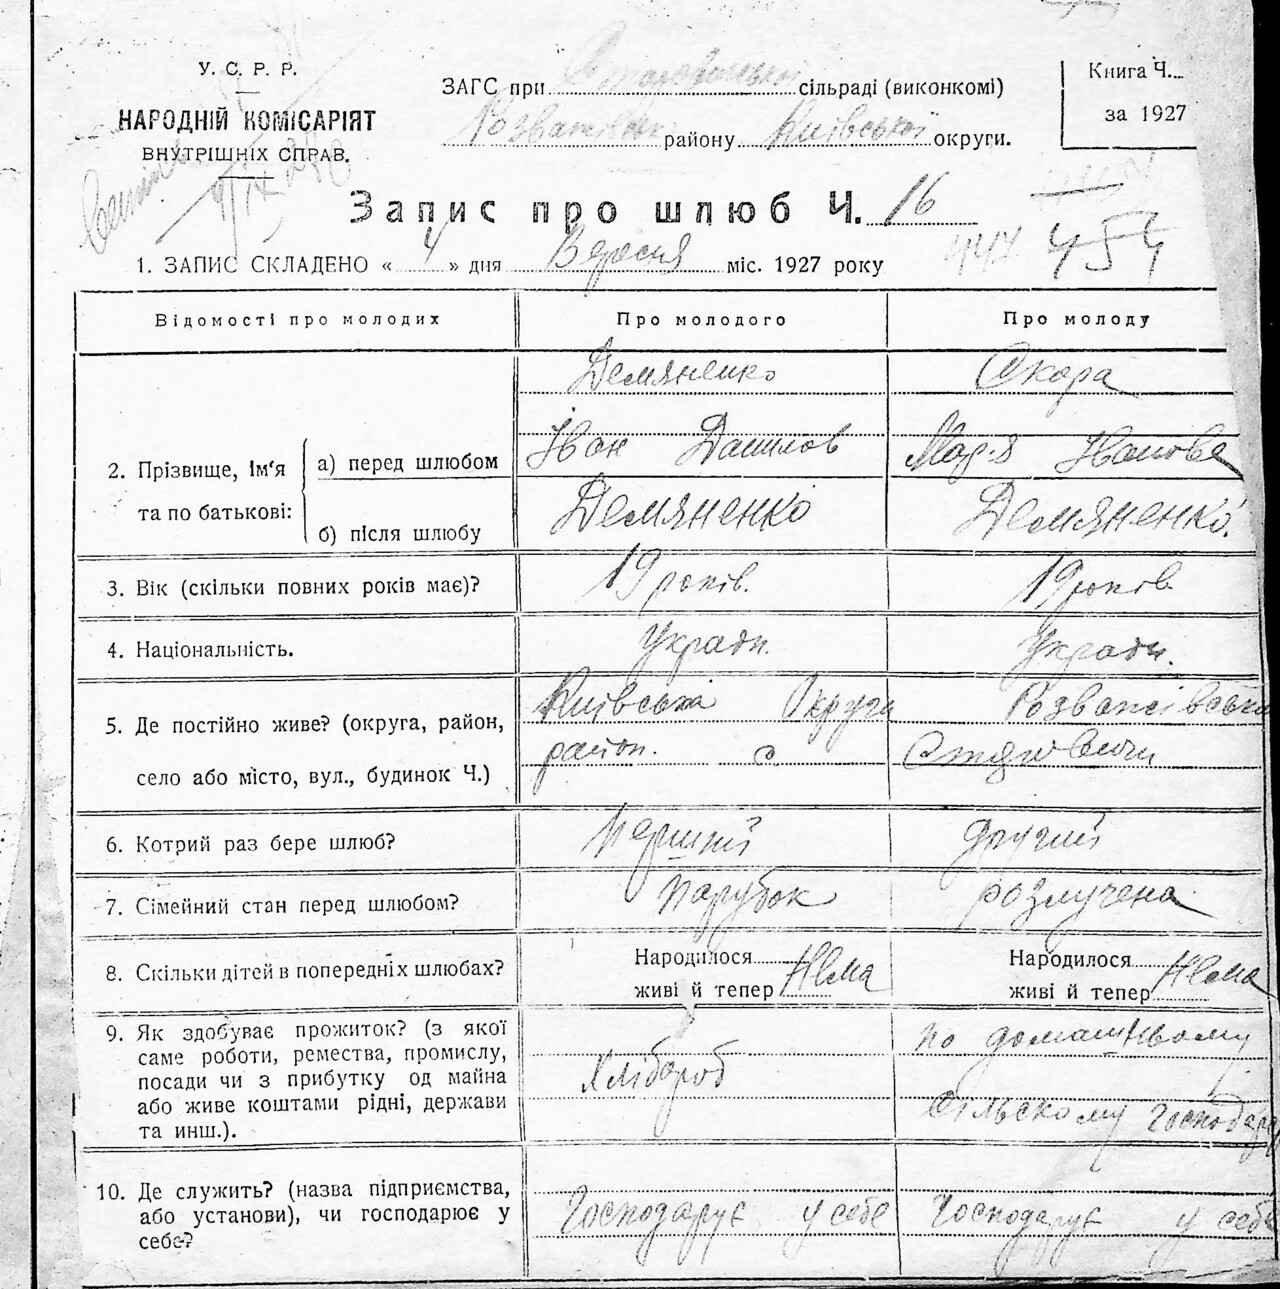 У. С. Р. Р.
НАРОДНІЙ КОМІСАРІЯТ
ВНУТРІШНІХ СПРАВ.
ЗАГС при сільраді (виконкомі)
району Київської округи.
Книга Ч.
за 1927
Запис про шлюб Ч. 16
454
1. ЗАПИС СКЛАДЕНО « 4 » дня Вересня міс. 1927 року
Відомості про молодих Про молодого Про молоду
Демяненко Скора
2. Прізвище, ім'я та по батькові: а) перед шлюбом Іван Данилов Іванова
б) після шлюбу Демяненко Демяненко.
3. Вік (скільки повних років має)? 19 років. 19 років
4. Національність. Україн. Україн.
5. Де постійно живе? (округа, район, Київська Округа Розважівськ
село або місто, вул., будинок Ч.) район. с
6. Котрий раз бере шлюб? Перший другий
7. Сімейний стан перед шлюбом? парубок розлучена
8. Скільки дітей в попередніх шлюбах? Народилося Народилося
живі й тепер Нема живі й тепер Нема
9. Як здобуває прожиток? (з якої
саме роботи, ремества, промислу,
посади чи з прибутку од майна
або живе коштами рідні, держави
та инш.).
Хлібороб
по домашньому
сільскому господар
10. Де служить? (назва підприємства,
або установи), чи господарює у
себе?
Господарує у себе Господарує у себе